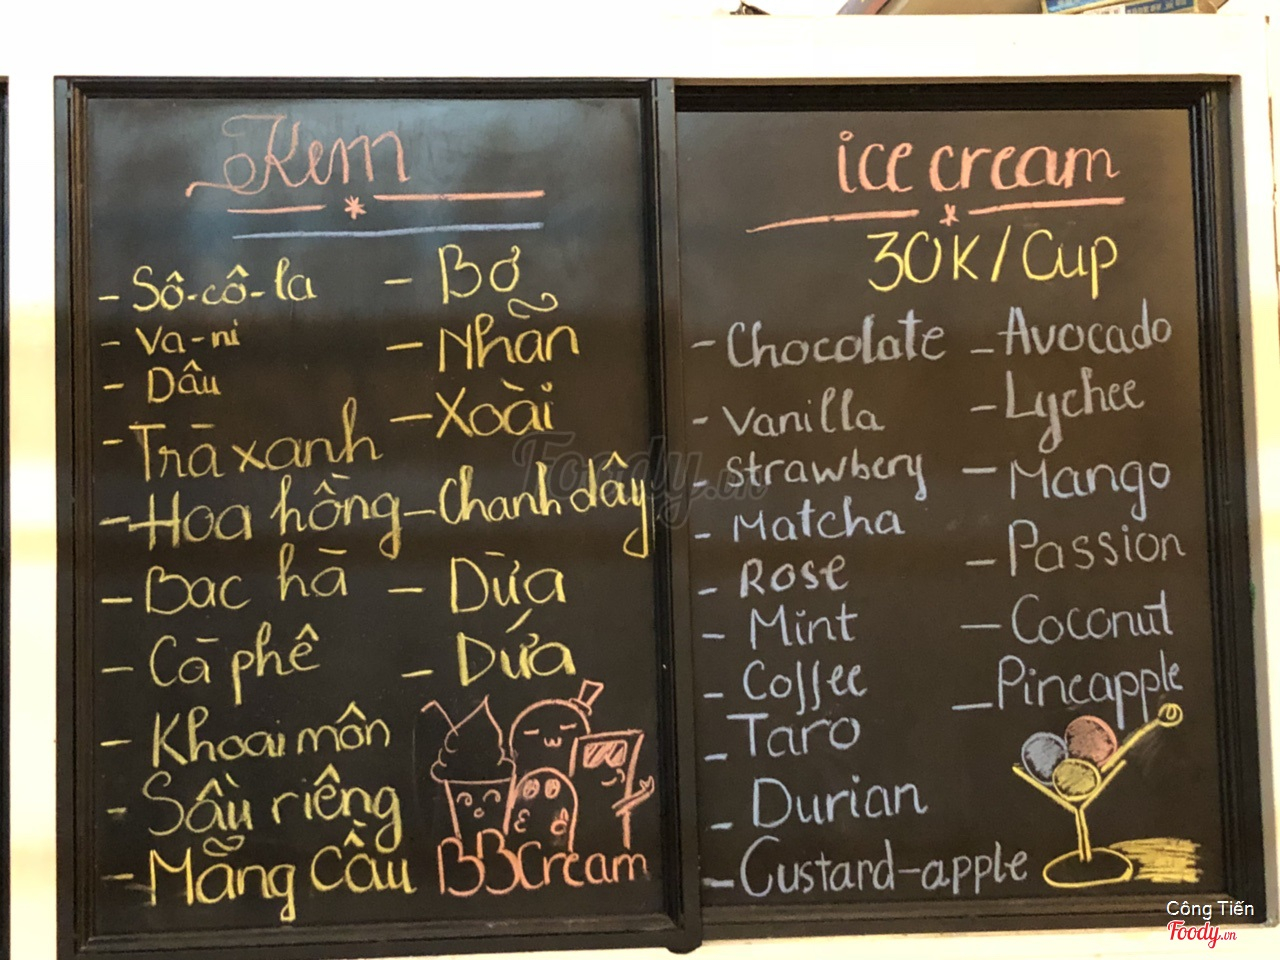 Kem
- Sô-cô-la
- Va-ni
- Dâu
- Trà xanh
- Hoa hồng
- Bac hà
- Cà phê
- Khoai môn
- Sầu riêng
- Mãng Cầu
- Bơ
- Nhãn
- Xoài
- Chanh dây
- Dừa
- Dứa
BBCream
ice cream
30K/Cup
- Chocolate
- Vanilla
- Strawbery
- Matcha
- Rose
- Mint
- Coffee
- Taro
- Durian
- Custard-apple
- Avocado
- Lychee
- Mango
- Passion
- Coconut
- Pineapple
Foody.vn
Công Tiến
Foody.vn